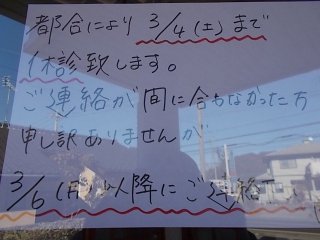 都合により 3/4(土)まで
休診致します。
ご連絡が間に合わなかった方
申し訳ありませんが
3/6(月)以降にご連絡下